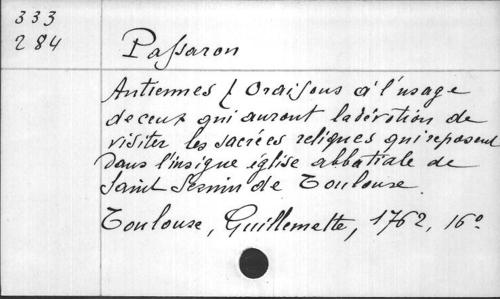 333
284
Passaron
Antiennes & Oraisons à l'usage
de ceux qui auront la dévotion de
visiter les sacrées reliques qui reposent
Dans l'insigne église abbatiale de
Saint Sernin de Toulouse.
Toulouse, Guillemette, 1762, 16º